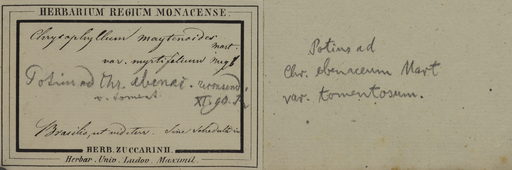 HERBARIUM REGIUM MONACENSE.
Chrysophyllum maytenoides
Mart.
var. myrtifolium
Potius ad Chr. ebenac.
v. toment.
Brasilia, ut videtur. Sine schedula
HERB. ZUCCARINII.
Herbar. Univ. Ludov. Maximil.
Potius ad
Chr. ebenaceum Mart
var. tomentosum.